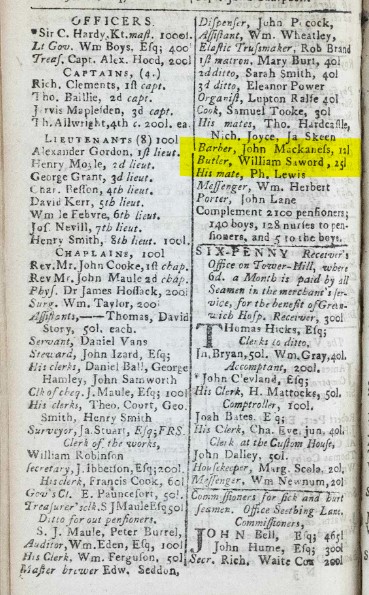 OFFICERS.
*Sir C. Hardy, Kt. mast. 1000l.
Lt Gov. Wm Boys, Esq; 400
Treas. Capt. Alex. Hood, 200
CAPTAINS, (4.)
Rich. Clements, 1st capt.
Tho. Baillie, 2d capt.
Jervis Maplesden, 3d capt.
Th. Allwright, 4th c. 200l. ea.
LIEUTENANTS (8) 100l
Alexander Gordon, 1st lieut.
Henry Moyle, 2d lieut.
George Grant, 3d lieut.
Char. Besson, 4th lieut.
David Kerr, 5th lieut.
Wm le Febvre, 6th lieut.
Jos. Nevill, 7th lieut.
Henry Smith, 8th lieut. 100l.
CHAPLAINS, 100l
Rev. Mr. John Cooke, 1st chap.
Rev Mr. John Maule 2d chap.
Phys. Dr James Hossack, 200l
Surg. Wm. Taylor, 200l
Assistants,—Thomas, David
Story, 50l. each.
Servant, Daniel Vans
Steward, John Izard, Esq;
His clerks, Daniel Ball, George
Hamley, John Samworth
Clk of cheq. J. Maule, Esq; 100l
His clerks, Theo. Court, Geo.
Smith, Henry Smith
Surveyor, Ja. Stuart, Esq; FRS.
Clerk of the works,
William Robinson
secretary, J. Ibbetson, Esq; 200l.
His clerk, Francis Cook, 60l
Gov's Cl. E. Pauncefort, 50l.
Treasurer's clk. S J Maule Esq 50l
Ditto for out pensioners.
S. J. Maule, Peter Burrel,
Auditor, Wm. Eden, Esq; 100l
His Clerk, Wm. Ferguson, 50l
Master brewer Edw. Seddon,
Dispenser, John Pocock,
Assistant, Wm. Wheatley,
Elastic Trussmaker, Rob Brand
1st matron, Mary Burt, 40l
2d ditto, Sarah Smith, 40l
3d ditto, Eleanor Power
Organist, Lupton Ralfe 40l
Cook, Samuel Tooke, 30l
His mates, Tho. Hardcastle,
Nich. Joyce, Ja Skeen
Barber, John Mackaness, 12l
Butler, William Saword, 25l
His mate, Ph. Lewis
Messenger, Wm. Herbert
Porter, John Lane
Complement 2100 pensioners;
140 boys, 128 nurses to pen-
sioners, and 5 to the boys.
SIX-PENNY Receiver's
Office on Tower-Hill, where
6d. a Month is paid by all
Seamen in the merchant's ser-
vice, for the benefit of Green-
wich Hosp. Receiver, 300l
THomas Hicks, Esq;
Clerks to ditto,
Jn. Bryan, 50l. Wm. Gray, 40l.
Accomptant, 200l.
*John C'evland, Esq;
His Clerk, H. Mattocks, 50l.
Comptroller, 100l.
Joah Bates. Esq;
His Clerk, Cha. Eve. jun, 40l.
Clerk at the Custom House,
John Dalley, 50l.
Housekeeper, Marg. Scola, 20l.
Messenger, Wm Newnum, 20l.
Commissioners for sick and hurt
seamen. Office Seething Lane.
Commissioners,
JOHN Bell, Esq; 465l
John Hume, Esq; 300l
Secr. Rich. Waite Cox 200l